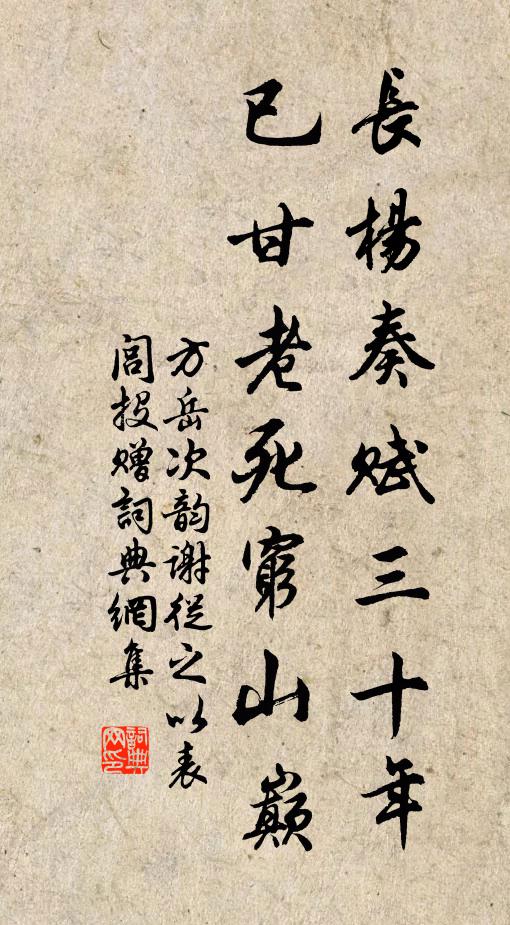 長楊奏賦三十年
已甘老死窮山巔
方岳次韵謝從之以表
閭投贈詞典網集
詞典網印